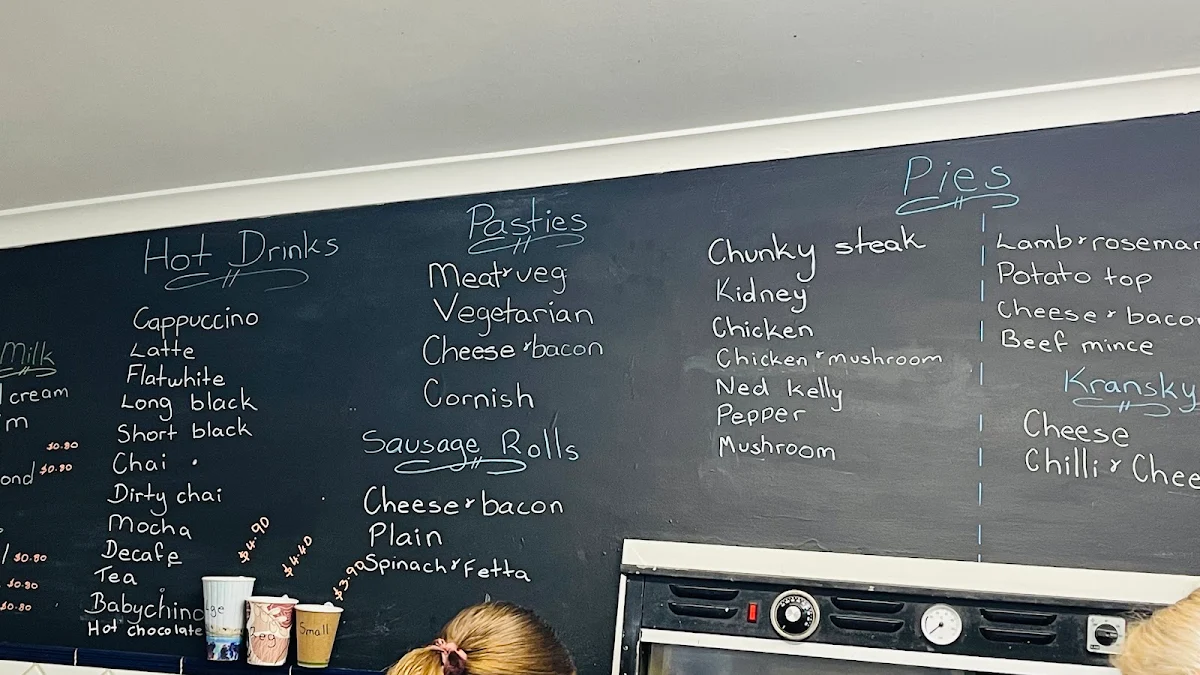 Milk
cream
$0.80
ond $0.80
$0.80
$0.80
$0.80
Hot Drinks
Cappuccino
Latte
Flatwhite
Long black
Short black
Chai
Dirty chai
Mocha
Decafe
Tea
Babychino
Hot chocolate
$4.90
$4.40
$3.90
ge
Reg
Small
Pasties
Meat & veg
Vegetarian
Cheese & bacon
Cornish
Sausage Rolls
Cheese & bacon
Plain
Spinach & Fetta
Pies
Chunky steak
Kidney
Chicken
Chicken & mushroom
Ned kelly
Pepper
Mushroom
Lamb & rosemar
Potato top
Cheese & bacon
Beef mince
Kransky
Cheese
Chilli & Chee